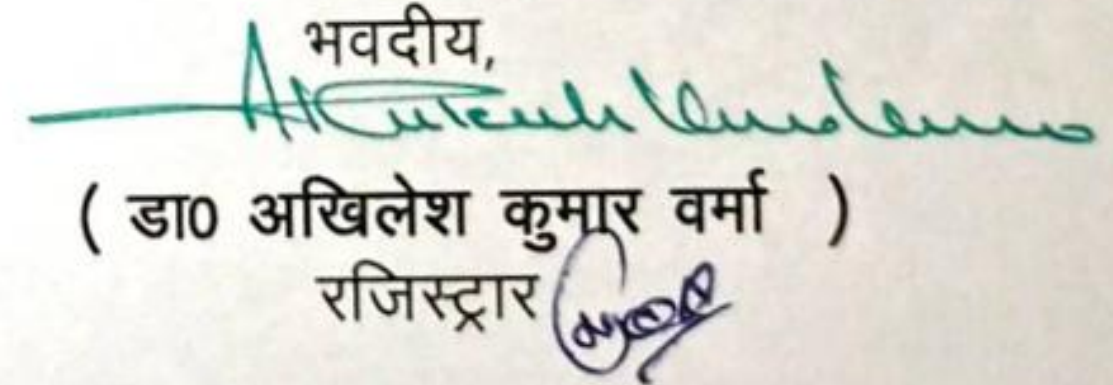 भवदीय,
( डा0 अखिलेश कुमार वर्मा )
रजिस्ट्रार